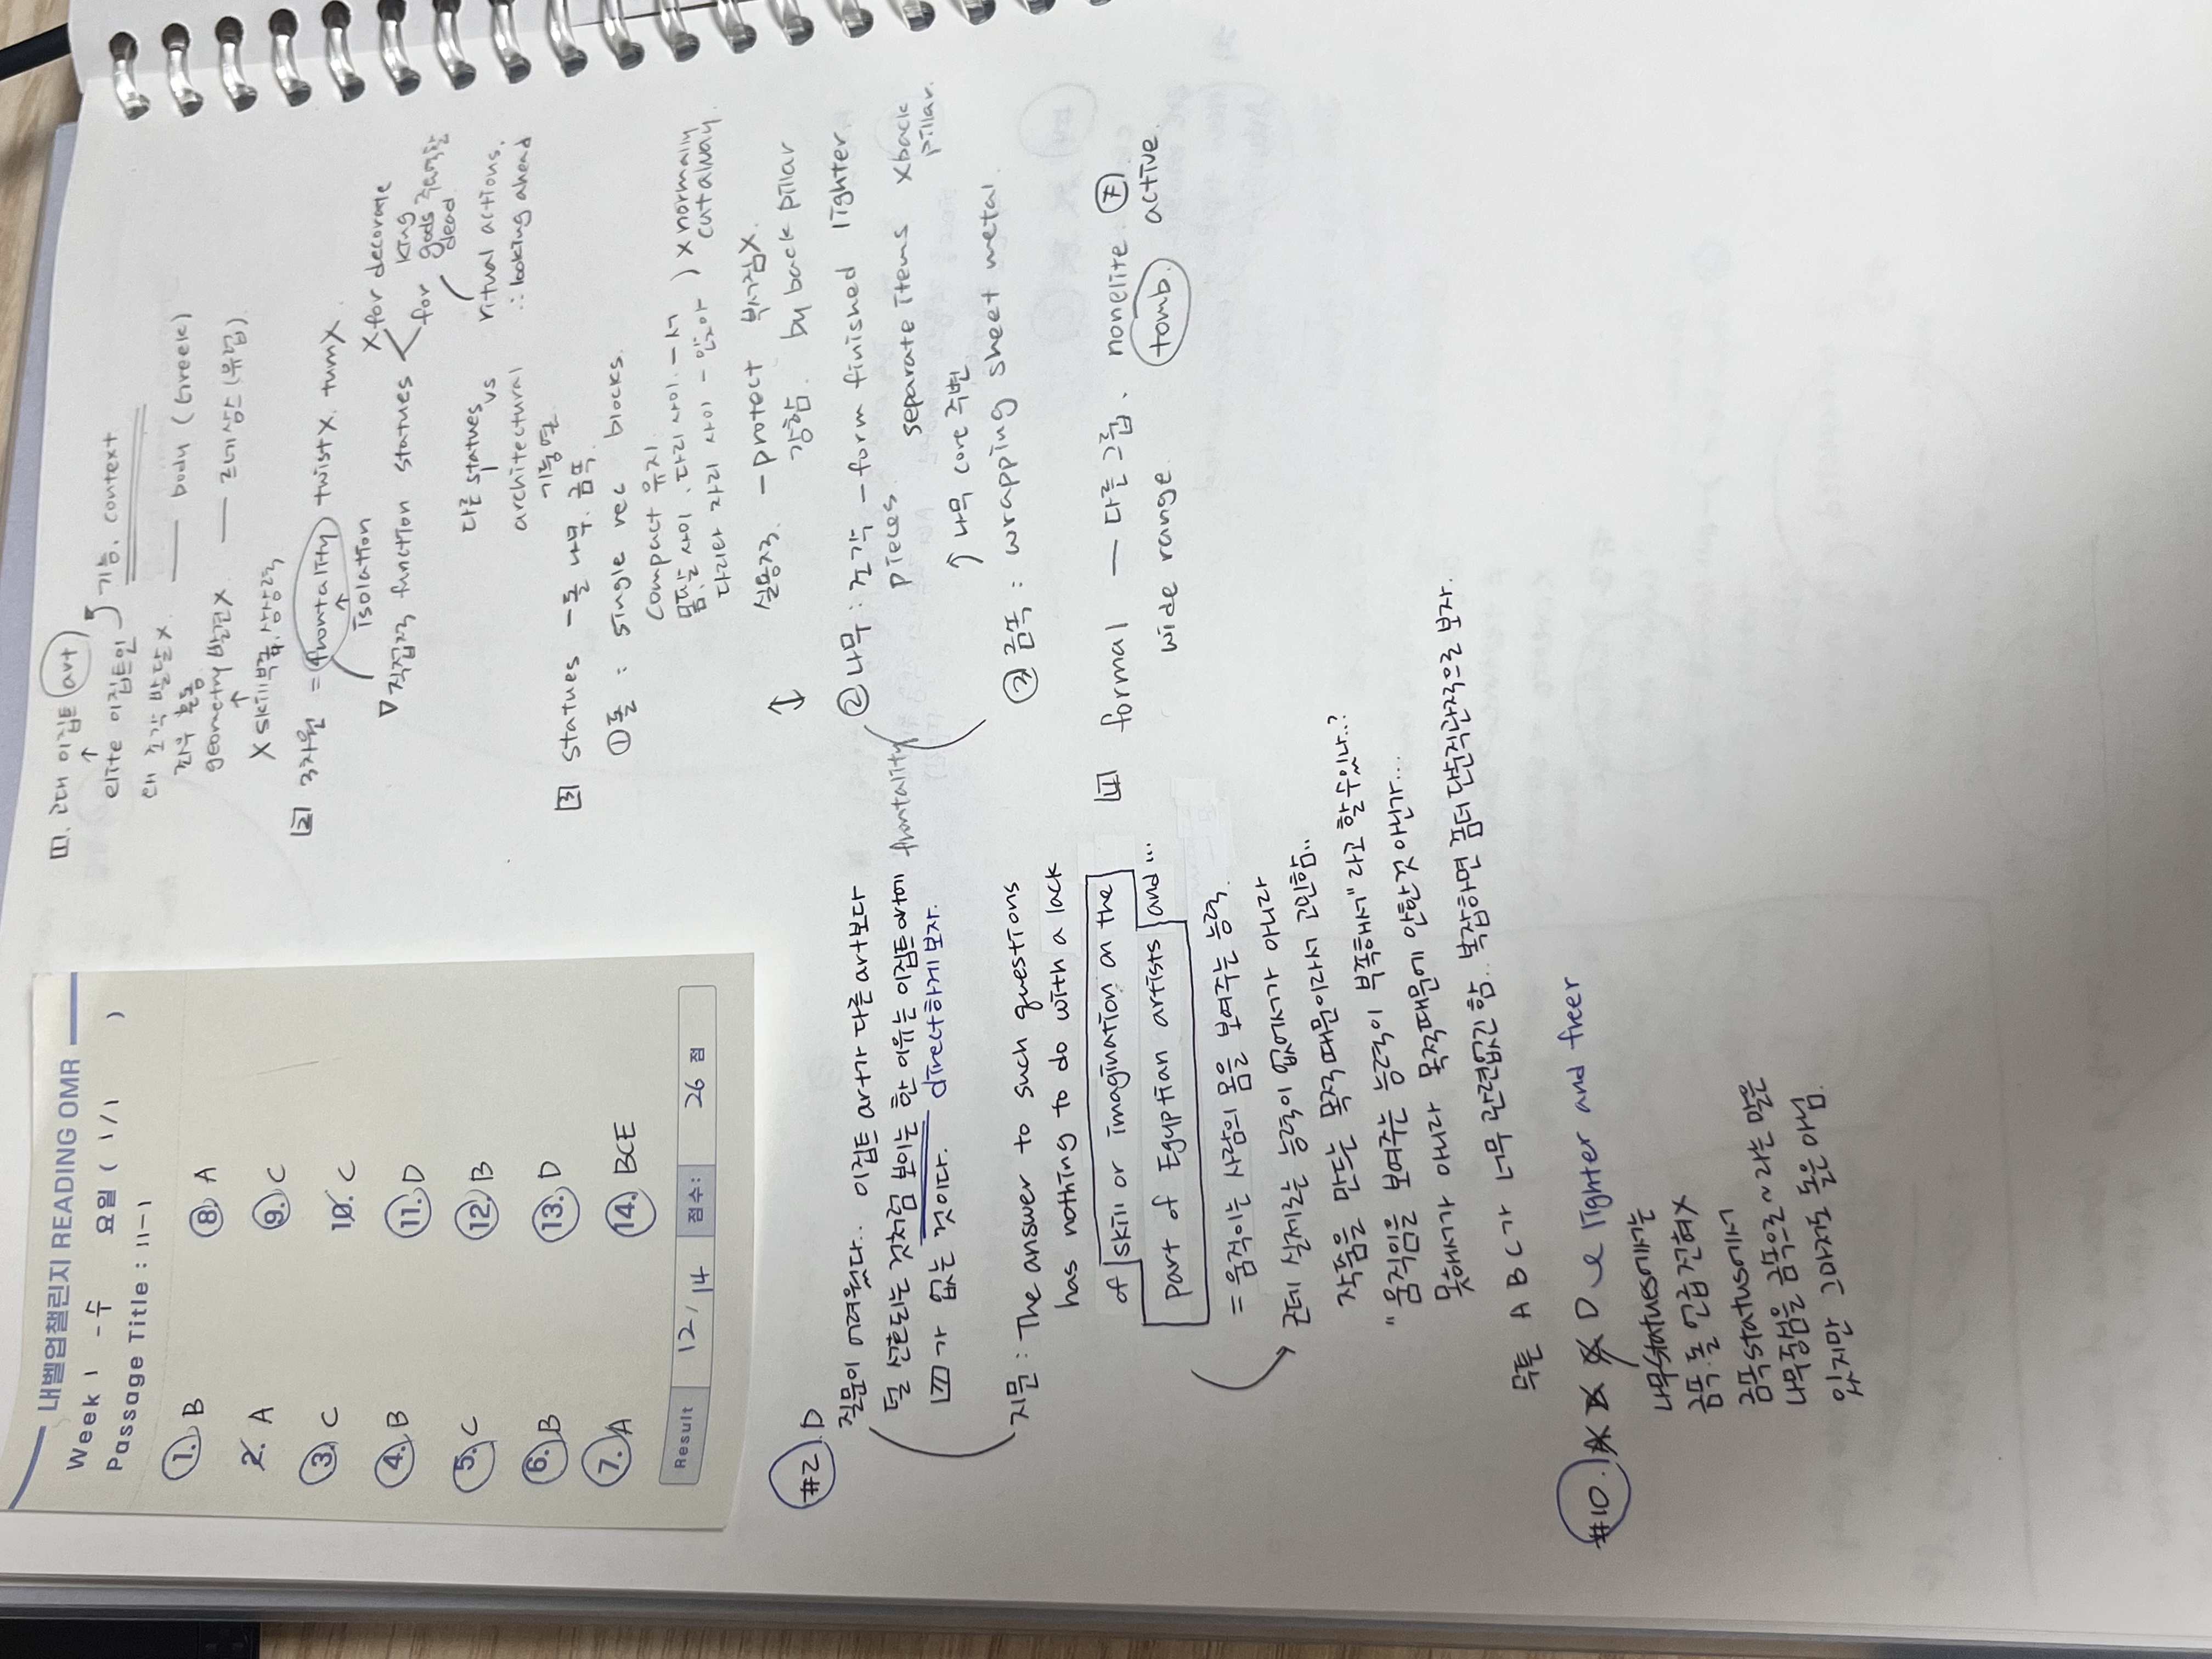 내벨업챌린지 READING OMR
Week 1 - 수 요일 ( 1/1 )
Passage Title : 11-1
1. B
2. A
3. C
4. B
5. C
6. B
7. A
8. A
9. C
10. C
11. D
12. B
13. D
14. BCE
Result 12/14 점수: 26 점
1. 고대 이집트 art
elite 이집트인 기능. context
대 조각 발달X
좌우
geometry 발견X
body (Greek)
르네상스(유럽)
X skill부족.상상력
2 3차원 = frontality twistX. turnX
isolation
▽ 직접적 function statues
X for decorate
for king gods 주변한 dead
다른 statues vs ritual actions.
architectural ∴ looking ahead
기능였
3 statues - 돌 나무. 금속.
① 돌 : single rec blocks.
compact 유지.
몸.눈 사이. 다리 사이. - 서
다리랑 자리 사이 - 앉아
) X normally cut away
실용적. - protect 부서짐X.
강함. by back pillar
↕
② 나무 : 조각 - form finished lighter
pieces. separate items X back pillar.
나무 core 주변
③ 금속 : wrapping sheet metal.
4 formal — 다른 그룹. nonelite
wide range tomb. active
#2 D
질문이 어려웠다.. 이집트 art가 다른 art보다
덜 선호되는것처럼 보이는 한 이유는 이집트 art에 frontality
가 없는 것이다. direct하게보자.
지문 : The answer to such questions
has nothing to do with a lack
of skill or imagination on the
part of Egyptian artists and...
= 움직이는 사람의 몸을 보여주는 능력.
근데 실제로는 능력이 없어서가 아니라
작품을 만든 목적때문이라서 고민함..
"움직임을 보여주는 능력이 부족해서" 라고 할수있나..?
못해서가 아니라 목적때문에 안한것 아닌가...
무튼 A B C가 너무 관련없긴 함.. 복잡하면 좀더단순직관적으로보자.
#10. A B C D lighter and freer
나무statues에서는
금속.돌 언급 전혀X
금속statues에서
나무중심을 금속으로~라는 말은
있지만 그마저도 돌은 아님.